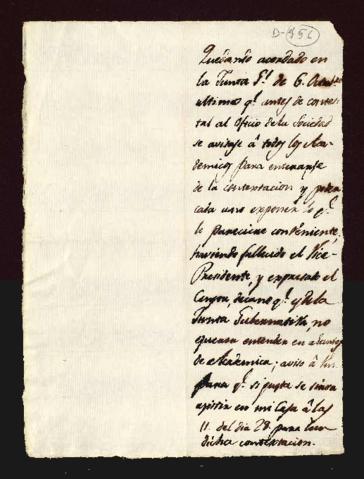 D-856
Quedando acordado en
la Junta G.l de 6. Octubre
ultimo q.e antes de contes-
tar al Oficio de la Sociedad
se avisase â todos los Aca-
demicos para enterarse
de la contestacion y para
cada uno exponer lo q.e
le pareciese conveniente,
haviendo fallecido el Vice-
Presidente, y expresado el
Censor, decano q.e es de la
Junta Gubernativa, no
querer entender en
de Academica; aviso â
para q.e si gusta se sirva
asistir en mi Casa â las
11. del dia 28. para
dicha contestacion.